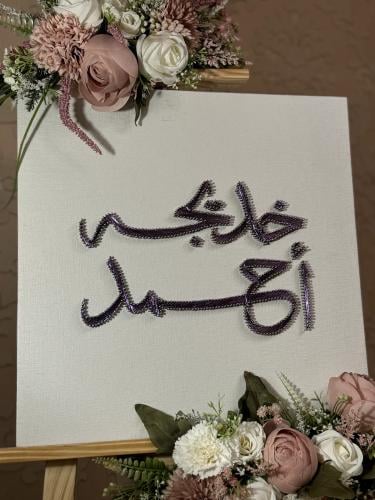 خديجه
أحمد